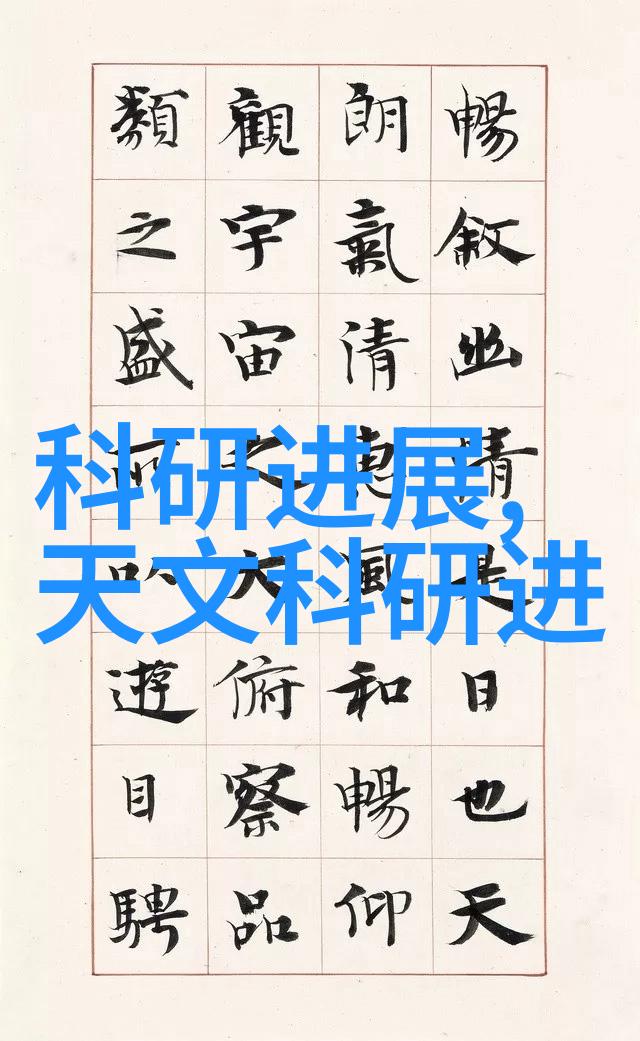 暢敘幽情是日也天
朗氣清惠風和暢仰
觀宇宙之大俯察品
類之盛所以遊目騁
科研进展,
天文科研进